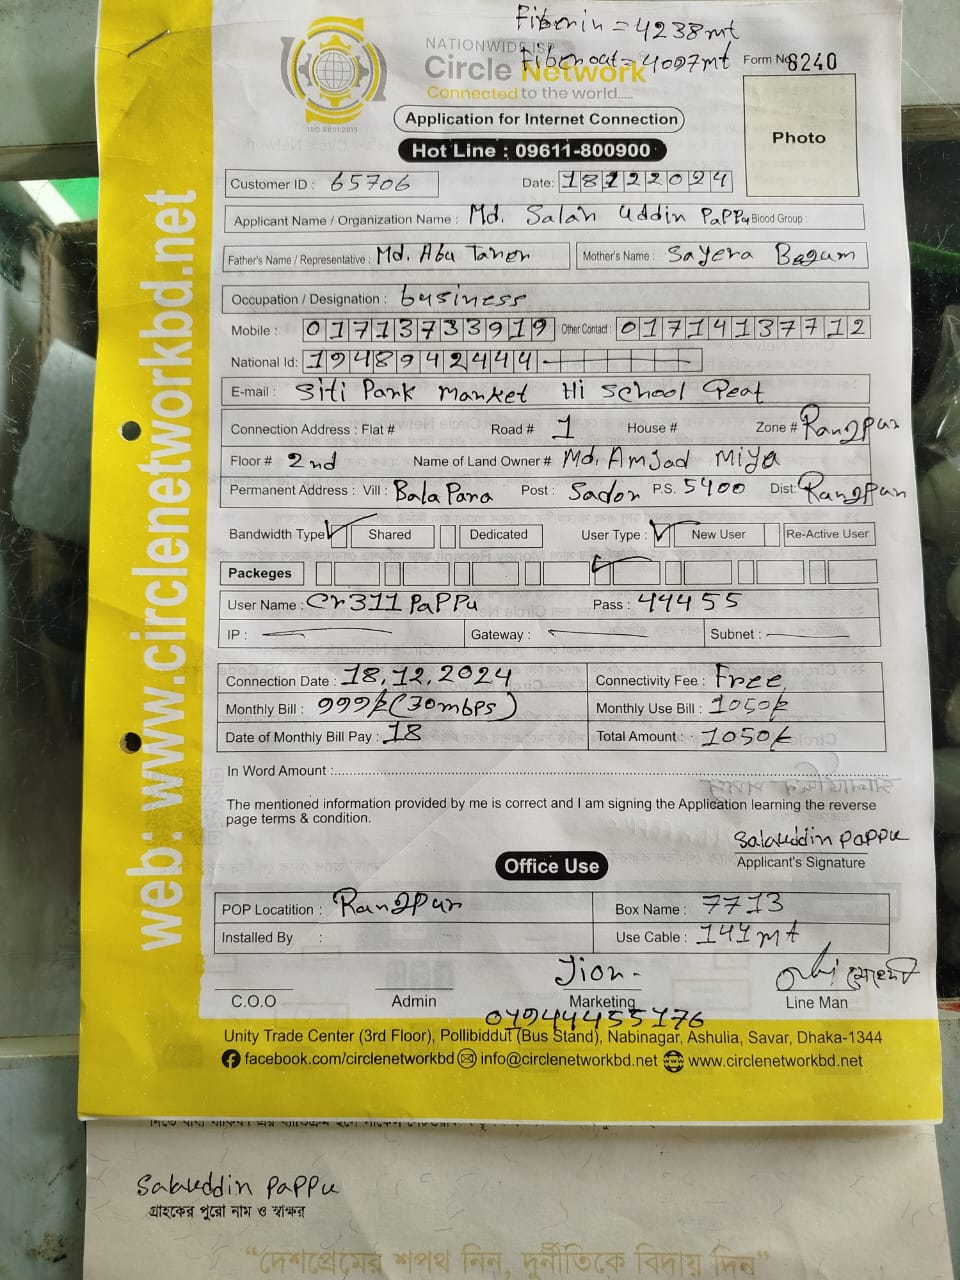 Fiber in = 4238mt
NATIONWIDE ISP
Fiber out = 4097mt
Form No 8240
Circle Network
Connected to the world.....
ISO 9001:2015
Application for Internet Connection
Photo
Hot Line : 09611-800900
Customer ID : 65706
Date: 18122024
Applicant Name / Organization Name : Md. Salah Uddin PaPPu Blood Group :
Father's Name / Representative : Md. Abu Taher
Mother's Name : Sayera Bagum
Occupation / Designation : business
Mobile : 01713733919 Other Contact : 01714137712
National Id: 1948942444
E-mail : Siti Park Market Hi School Geat
Connection Address : Flat # Road # 1 House # Zone # Rangpur
Floor # 2nd Name of Land Owner # Md. Amjad Miya
Permanent Address : Vill : Bala Para Post : Sador P.S. 5400 Dist: Rangpur
Bandwidth Type Shared Dedicated User Type : New User Re-Active User
Packeges
User Name : Cr311 PaPPu Pass : 44455
IP : Gateway : Subnet :
Connection Date : 18.12.2024 Connectivity Fee : Free
Monthly Bill : 999/k (30mbps) Monthly Use Bill : 1050k
Date of Monthly Bill Pay : 18 Total Amount : 1050k
In Word Amount :
The mentioned information provided by me is correct and I am signing the Application learning the reverse
page terms & condition.
Salauddin PaPPu
Applicant's Signature
Office Use
POP Locatition : Rangpur Box Name : 7713
Installed By : Use Cable : 141 mt
Jion
C.O.O Admin Marketing Line Man
01944455176
Unity Trade Center (3rd Floor), Pollibiddut (Bus Stand), Nabinagar, Ashulia, Savar, Dhaka-1344
facebook.com/circlenetworkbd info@circlenetworkbd.net www.circlenetworkbd.net
web: www.circlenetworkbd.net
Salauddin PaPPu
গ্রাহকের পুরো নাম ও স্বাক্ষর
“দেশপ্রেমের শপথ নিন, দুর্নীতিকে বিদায় দিন”